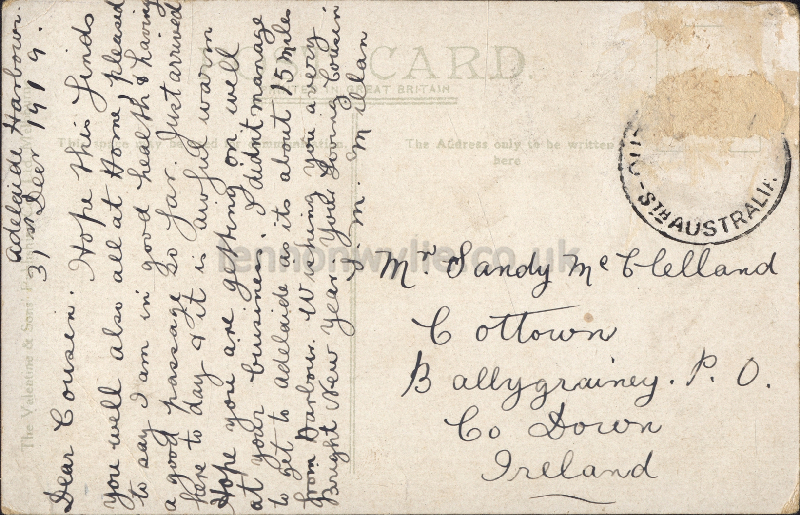 Adelaide Harbour.
31st Decr 1919.
Dear Cousin. Hope this finds
you well also all at Home, pleased
to say I am in good health & having
a good passage so far. Just arrived
here to day & it is awful warm
Hope you are getting on well
at your business. I didn't manage
to get to adelaide as its about 15 miles
from Harbour. Wishing you a very
Bright New Year your Loving Cousin
J. M. McClan
POST CARD
PRINTED IN GREAT BRITAIN
This space may be used for communication.
The Address only to be written
here
The Valentine & Sons
STH AUSTRALIA
Mr. Sandy McClelland
Cottown
Ballygrainey. P. O.
Co Down
Ireland
lennonwylie.co.uk